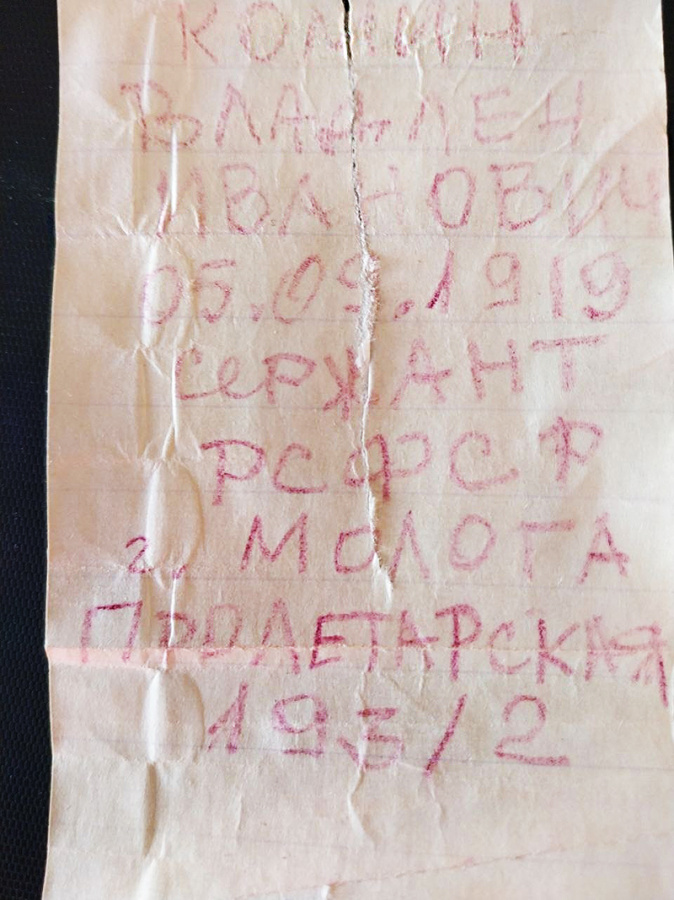 ВЛАДЛЕН
ИВАНОВИЧ
05.09.1919
СерЖАНТ
РСФСР
г. МОЛОГА
ПРОЛЕТАРСКАЯ
193/2